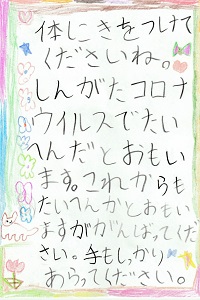 体にきをつけて
くださいね。
しんがたコロナ
ウイルスでたい
へんだとおもい
ます。これからも
たいへんかとおもい
ますががんばってくだ
さい。手もしっかり
あらってください。